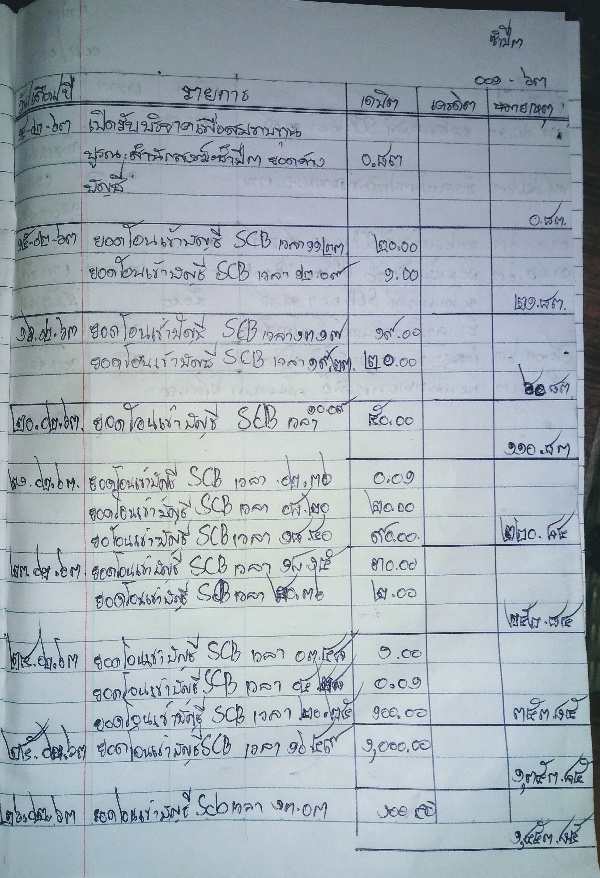 วัน/เดือน/ปี รายการ เดบิต เครดิต หมายเหตุ
เปิดรับบริจาคเพื่อสมทบทุน
บูรณะสำนักสงฆ์ ยอดค้าง ๐.๘๓
บัญชี
๐.๘๓
๑๕.๐๒.๖๓ ยอดโอนเข้าบัญชี SCB เวลา ๒๐.๐๐
ยอดโอนเข้าบัญชี SCB เวลา ๑๒.๐๙ ๑.๐๐
๒๑.๘๓
๑๖.๐๒.๖๓ ยอดโอนเข้าบัญชี SCB เวลา ๑๓.๑๗ ๑๙.๐๐
ยอดโอนเข้าบัญชี SCB เวลา ๑๙.๒๓ ๒๐.๐๐
๖๐.๘๓
๒๐.๐๒.๖๓ ยอดโอนเข้าบัญชี SCB เวลา ๑๐.๐๙ ๕๐.๐๐
๑๑๐.๘๓
๒๑.๐๒.๖๓ ยอดโอนเข้าบัญชี SCB เวลา ๐๒.๓๖ ๐.๐๑
ยอดโอนเข้าบัญชี SCB เวลา ๐๘.๒๐ ๒๐.๐๐
ยอโอนเข้าบัญชี SCB เวลา ๑๘.๔๐ ๙๐.๐๐ ๒๒๐.๘๔
๒๓.๐๒.๖๓ ยอดโอนเข้าบัญชี SCB เวลา ๑๘.๑๕ ๓๐.๐๐
ยอดโอนเข้าบัญชี SCB เวลา ๒๐.๓๖ ๒.๐๐
๒๕๒.๘๔
๒๔.๐๒.๖๓ ยอดโอนเข้าบัญชี SCB เวลา ๑.๐๐
ยอดโอนเข้าบัญชี SCB เวลา ๐.๐๑
ยอดโอนเข้าบัญชี SCB เวลา ๒๐.๓๕ ๑๐๐.๐๐ ๓๕๓.๘๕
๒๕.๐๒.๖๓ ยอดโอนเข้าบัญชี SCB เวลา ๑๖.๕๙ ๑,๐๐๐.๐๐
๑,๓๕๓.๘๕
๒๖.๐๒.๖๓ ยอดโอนเข้าบัญชี Scb เวลา ๑๓.๐๓ ๑๐๐.๐๐
๑,๔๕๓.๘๕